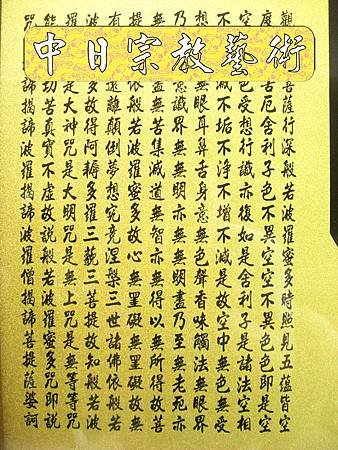 中日宗教藝術
觀菩薩行深般若波羅蜜多時照見五蘊皆空
度苦厄舍利子色不異空空不異色色即是空
空色受想行識亦復如是舍利子是諸法空相
不滅不垢不淨不增不減是故空中無色無受
想無眼耳鼻舌身意無色聲香味觸法無眼界
乃意識界無無明亦無無明盡乃至無老死亦
無盡無苦集滅道無智亦無得以無所得故菩
提依般若波羅蜜多故心無罣礙無罣礙故無
有遠離顛倒夢想究竟涅槃三世諸佛依般若
波多故得阿耨多羅三藐三菩提故知般若波
羅是大神咒是大明咒是無上咒是無等等咒
能切苦真實不虛故說般若波羅蜜多咒即說
咒諦揭諦波羅揭諦波羅僧揭諦菩提薩婆訶